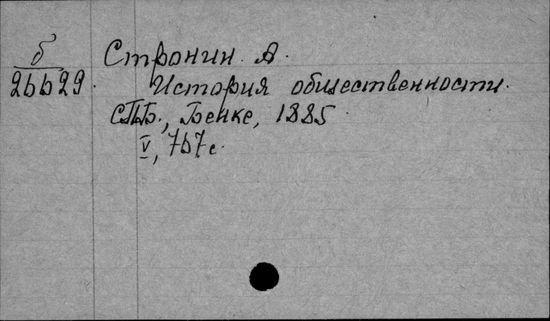 б
26629
Стронин А.
История общественности.
СПБ., Бенке, 1885
V, 767 с.